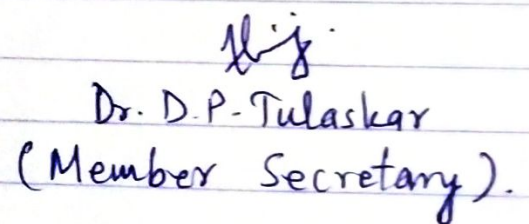 Dr. D.P-Tulaskar
(Member Secretary).